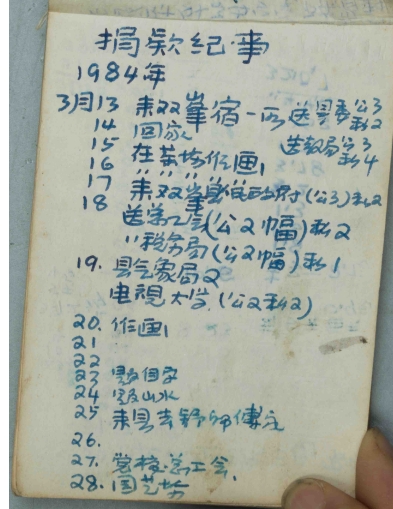 捐款纪事
1984年
3月13 来双峯宿一所送县委公3私2
14 回家 送教局公3私4
15 在茶场作画1
16 〃 〃 〃 〃
17 来双峯 政府(公3)私2
18 送总工会(公2幅)私2
〃税务局(公2幅)私1
19. 县气象局2
电视大学.(公2私2)
20. 作画1
21
22
23 题国字
24 题山水
25 来县去 师傅
26.
27. 党校.总工会.
28. 园艺场